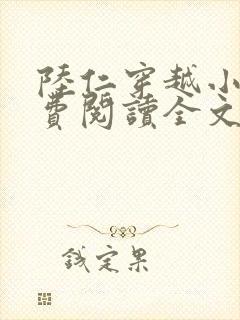 陸仁穿越小
費閱讀全文
鈛定果